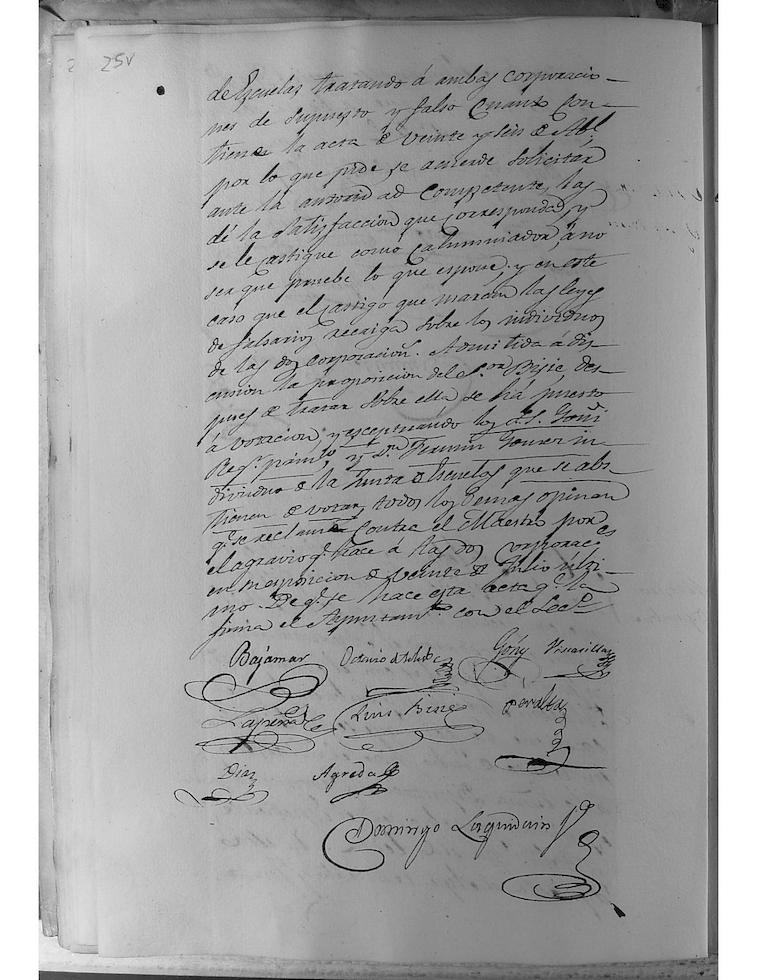 25v
de Escuelas tratando á ambas corporacio-
nes de supuesto y falso cuanto con-
tiene la acta de veinte y seis de Abl.
por lo que pide se acuerde solicitar
ante la autoridad competente, las
dé la satisfaccion que corresponda, y
se le castigue como calumniador, á no
ser que pruebe lo que espone, y en este
caso que el castigo que marcan las leyes
de falsarios recaiga sobre los individuos
de las dos corporacions. Admitida á dis-
cusion la proposicion del Sor. Bisie des-
pues de tratar sobre ella se há puesto
á votacion, y esceptuándo los S.S. Goñi
Regr. y Dn. Fermin in-
dividuo de la Junta de Escuelas que se abs-
tienen de votar, todos los demas opinan
qe. se reclame contra el Maestro por
el agravio qe. hace á las dos corporaces
en su esposicion de veinte de Julio últi-
mo. De qe. se hace esta acta qe. la
firma el Ayuntamto. con el Secro.
Bajamar Octavio de Toledo Goñy
Lapeña Luis Bisie Peralta
Diaz Agreda
Domingo